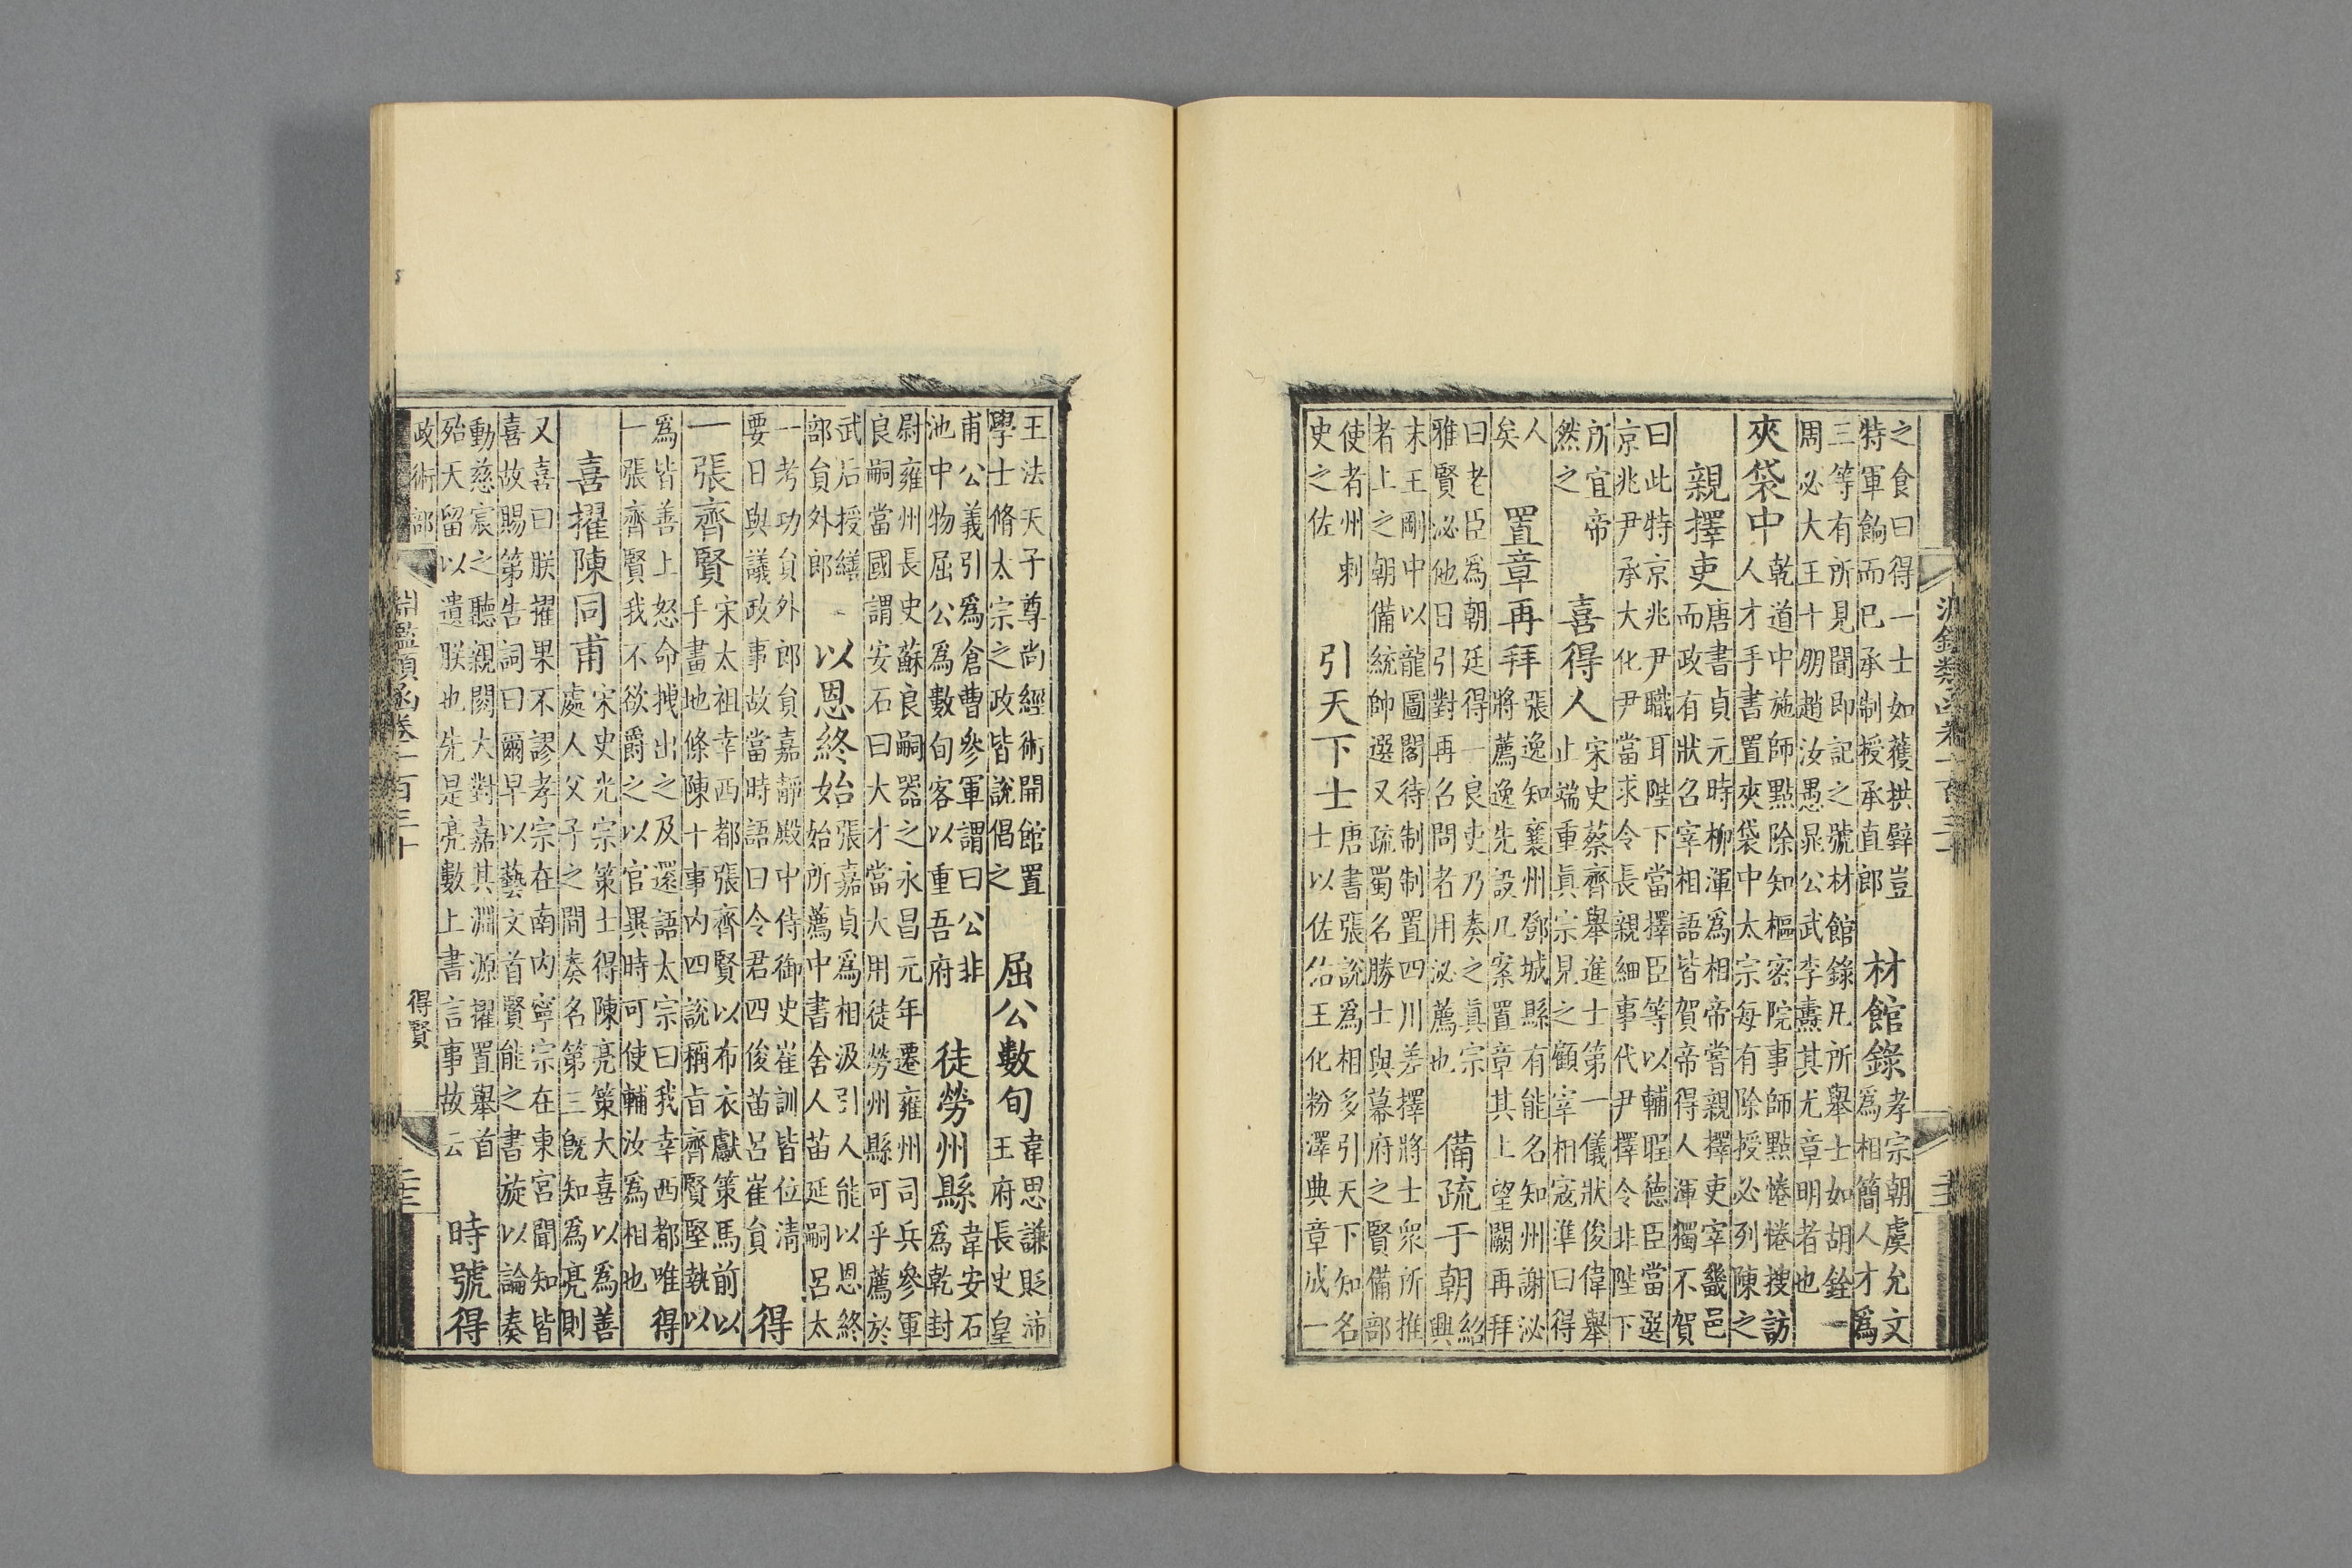 淵鑑類函卷一百三十
之食曰得一士如獲拱璧豈
特軍餉而已承制授承直郎
材館錄
孝宗朝虞允文
爲相簡人才爲
三等有所見聞即記之號材館錄凡所舉士如胡銓
周必大王十朋趙汝愚晁公武李燾其尤章明者也
一
夾袋中
乾道中施師點除知樞密院事師點惓惓搜訪
人才手書置夾袋中太宗每有除授必列陳之
親擇吏
唐書貞元時柳渾爲相帝嘗親擇吏宰畿邑
而政有狀召宰相語皆賀帝得人渾獨不賀
曰此特京兆尹職耳陛下當擇臣等以輔聖德臣當選
京兆尹承大化尹當求令長親細事代尹擇令非陛下
所宜帝
然之
喜得人
宋史蔡齊舉進士第一儀狀俊偉舉
止端重眞宗見之顧宰相寇準曰得
人
矣
置章再拜
張逸知襄州鄧城縣有能名知州謝泌
將薦逸先設几案置章其上望闕再拜
曰老臣爲朝廷得一良吏乃奏之眞宗
雅賢泌他日引對再召問者用泌薦也
備疏于朝
紹
興
末王剛中以龍圖閣待制制置四川差擇將士衆所推
者上之朝備統帥選又疏蜀名勝士與幕府之賢備部
使者州刺
史之佐
引天下士
唐書張說爲相多引天下知名
士以佐佑王化粉澤典章成一
王法天子尊尚經術開館置
學士脩太宗之政皆說倡之
屈公數旬
韋思謙貶沛
王府長史皇
甫公義引爲倉曹參軍謂曰公非
池中物屈公爲數旬客以重吾府
徒勞州縣
韋安石
爲乾封
尉雍州長史蘇良嗣器之永昌元年遷雍州司兵參軍
良嗣當國謂安石曰大才當大用徒勞州縣可乎薦於
武后授繕
部貟外郎
以恩終始
張嘉貞爲相汲引人能以恩終
始所薦中書舍人苗延嗣呂太
一考功貟外郎貟嘉靜殿中侍御史崔訓皆位清
要日與議政事故當時語曰令君四俊苗呂崔貟
得
一張齊賢
宋太祖幸西都張齊賢以布衣獻策馬前以
手畫地條陳十事内四說稱旨齊賢堅執以
爲皆善上怒命拽出之及還語太宗曰我幸西都唯得
一張齊賢我不欲爵之以官異時可使輔汝爲相也
喜擢陳同甫
宋史光宗策士得陳亮策大喜以爲善
處人父子之間奏名第三旣知爲亮則
又喜曰朕擢果不謬孝宗在南内寧宗在東宮聞知皆
喜故賜第告詞曰爾早以藝文首賢能之書旋以論奏
動慈宸之聽親閱大對嘉其淵源擢置舉首
殆天留以遺朕也先是亮數上書言事故云
時號得
政術部
淵鑑類函卷一百三十
得賢